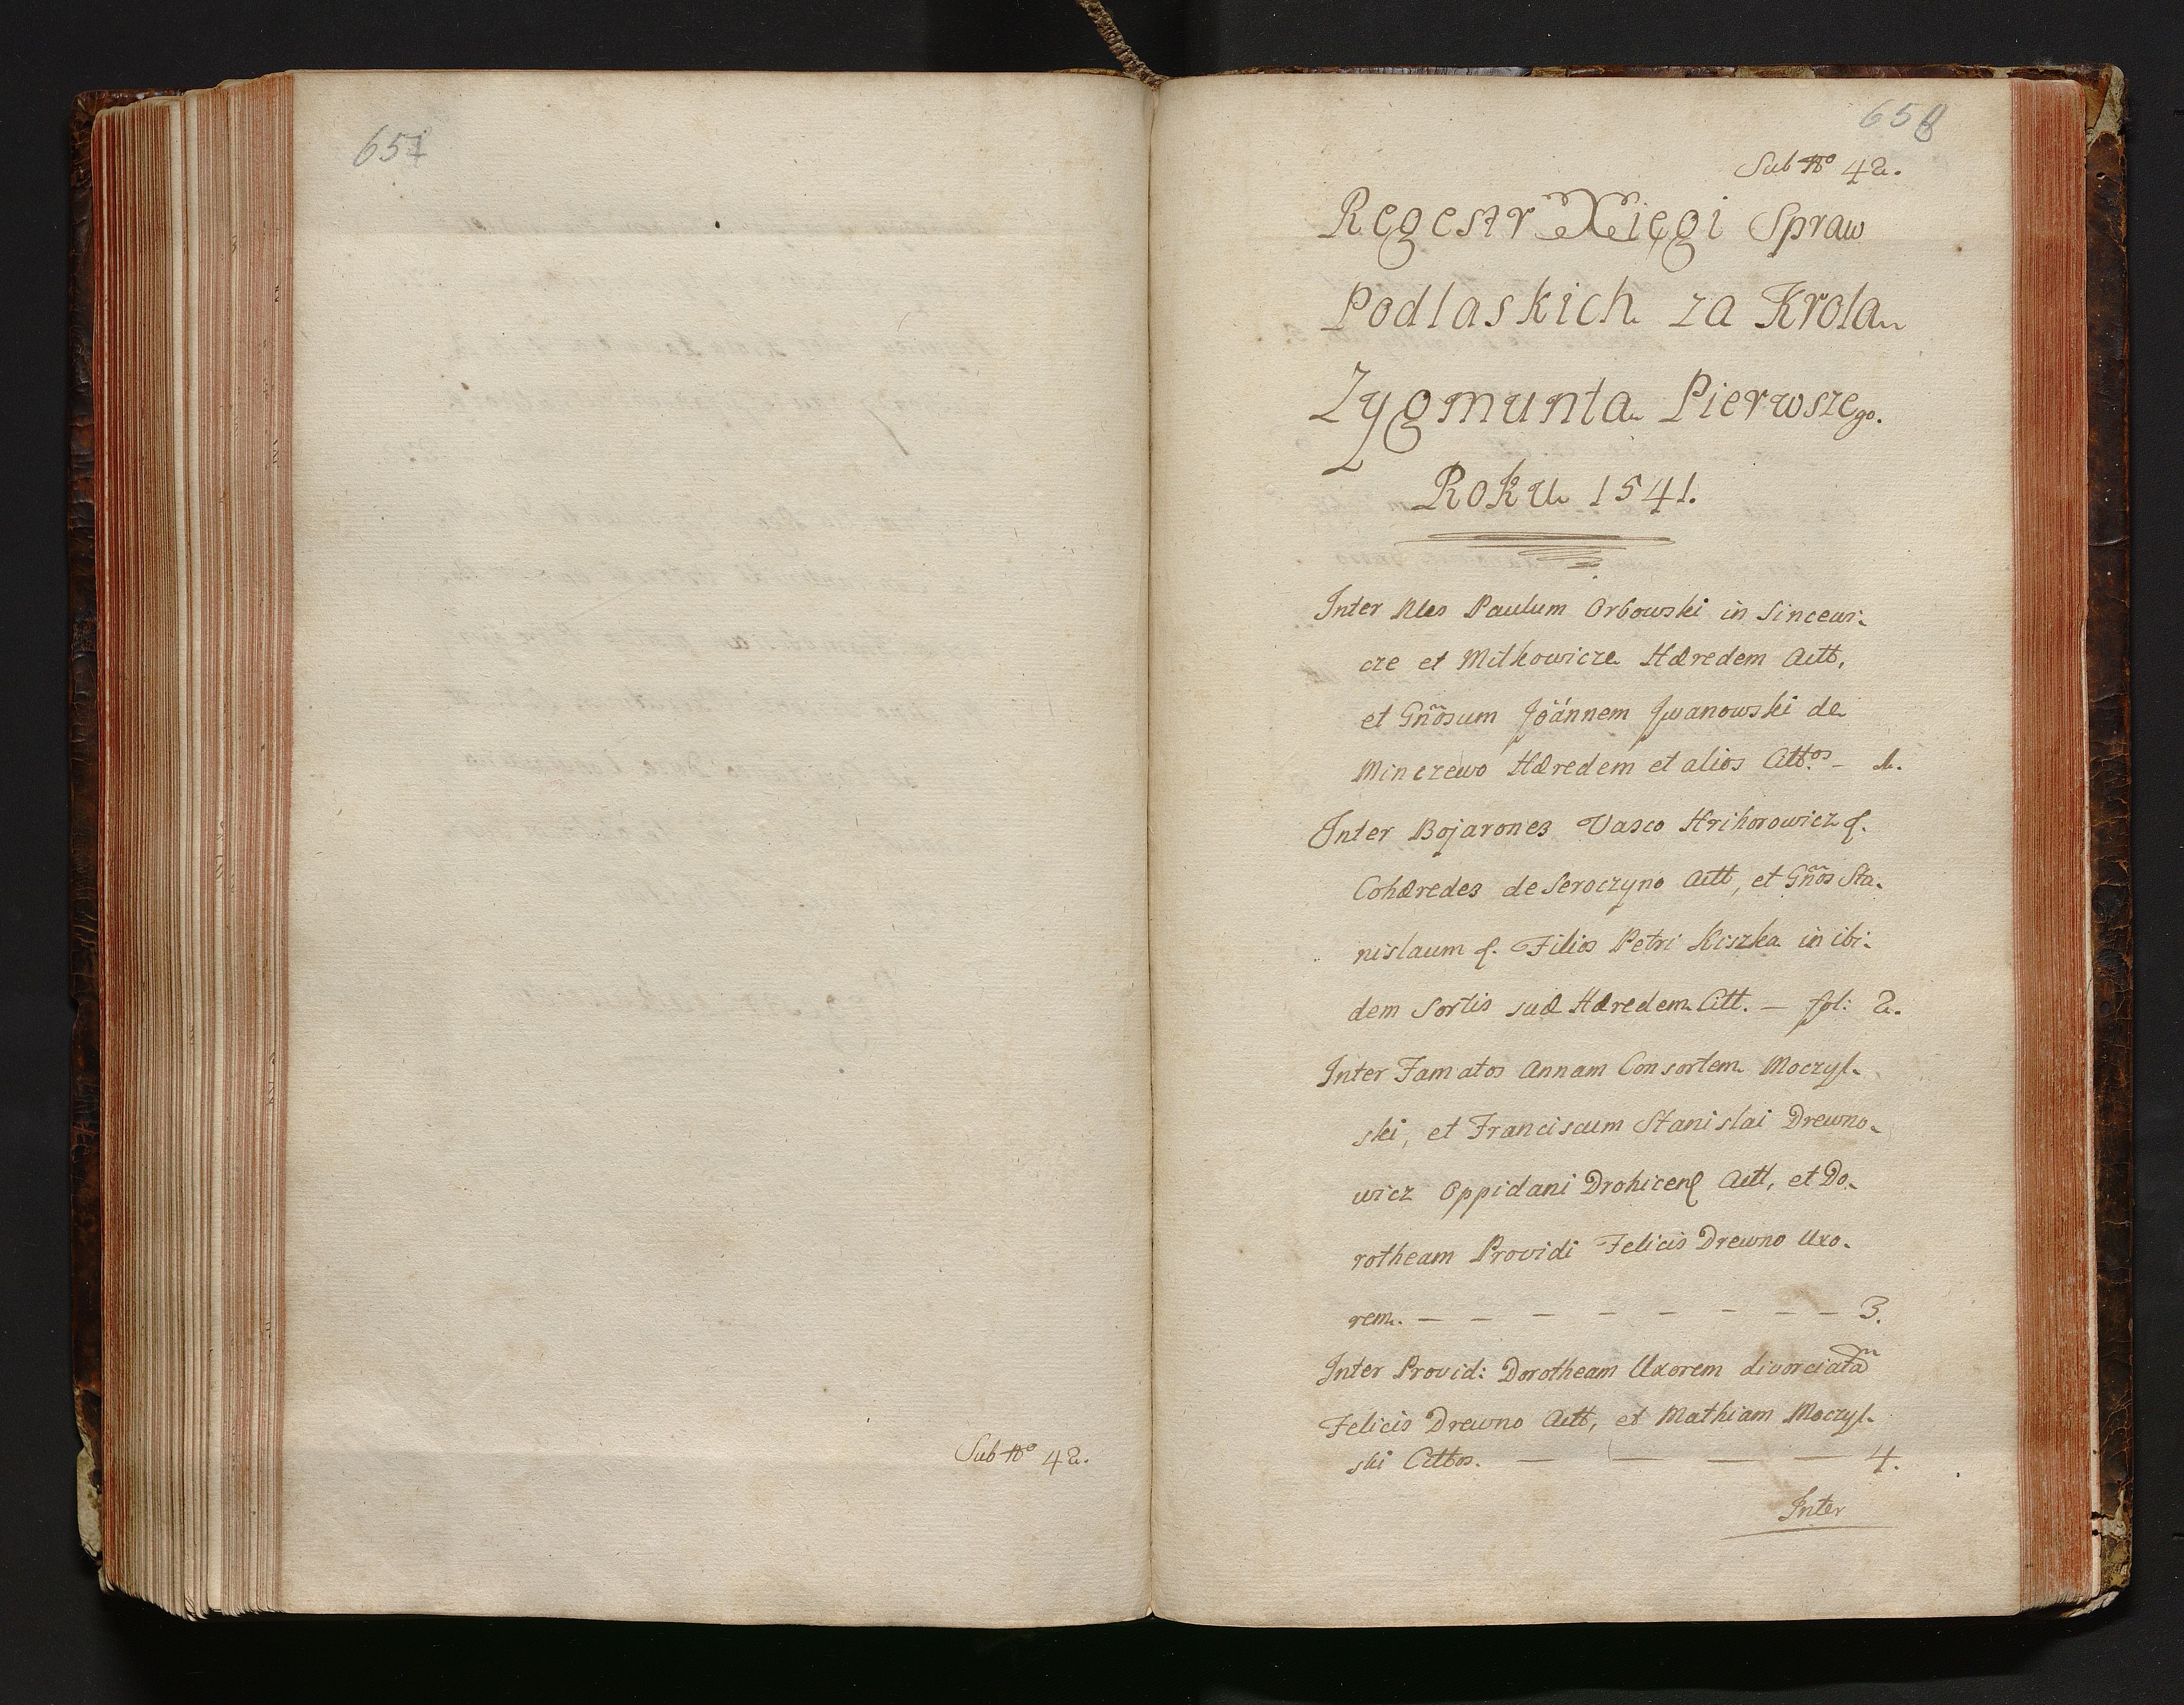 657
Sub No 42.
658
Sub No 42.
Regestr Xięgi Spraw
Podlaskich za Krola
Zygmunta Pierwszego.
Roku 1541.
Inter Nles Paulum Orbowski in Sincewi-
cze et Milkowicze Hæredem Actt,
et Gñosum Joánnem Jwanowski de
Minczewo Hæredem et alios Citt.os - 1.
Inter Bojarones Vasco Hrihorowicz &.
Cohæredes de Seroczyno Actt, et Gños Sta-
nislaum &. Filios Petri Kiszka in ibi-
dem Sortis suæ Hæredem Citt. — fol: 2.
Inter Famatos Annam Consortem Moczyl-
ski, et Franciscum Stanislai Drewno-
wicz Oppidani Drohicen Actt, et Do-
rotheam Providi Felicis Drewno Uxo-
rem. — — — — — — — — 3.
Inter Provid: Dorotheam Uxorem divorciatã
Felicis Drewno Actt, et Mathiam Moczyl-
ski Cittos. — — — — 4.
Inter